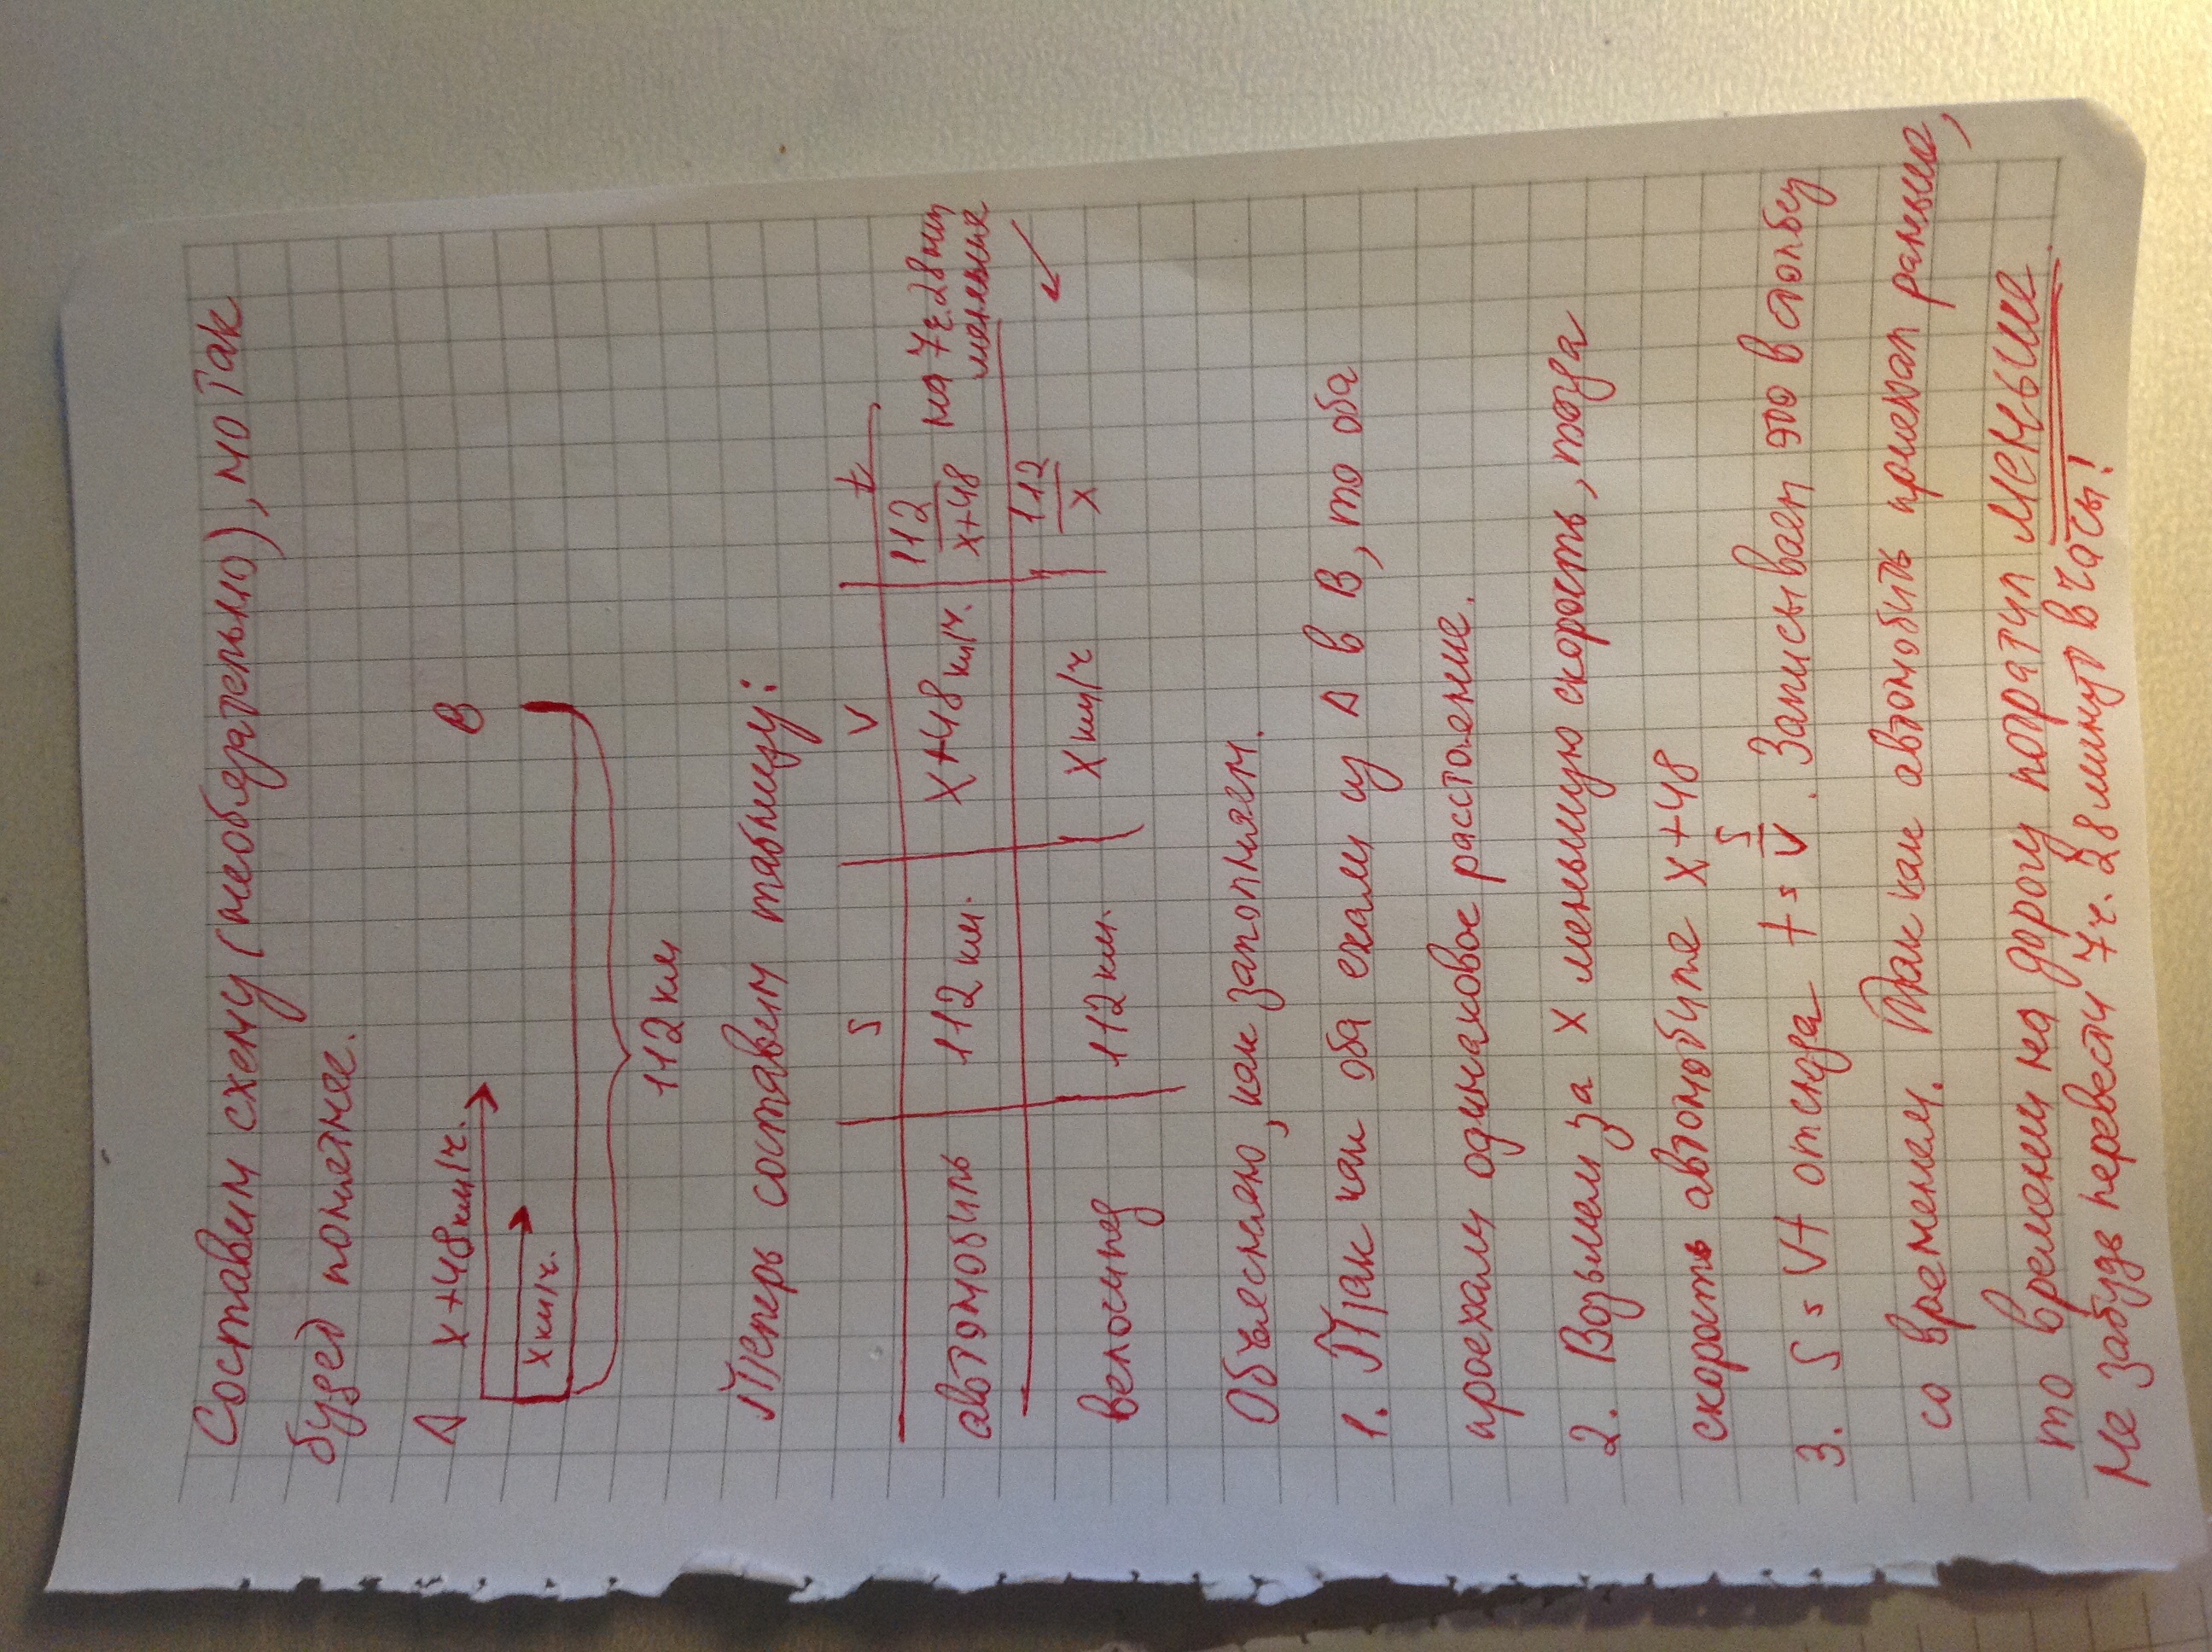 Составим схему (необязательно), но так
будет понятнее.
A x+48 км/ч. B
x км/ч.
112 км
Теперь составим таблицу:
S V t
автомобиль 112 км. x+48 км/ч. 112/x+48 на 7ч.28мин меньше
велосипед 112 км. x км/ч 112/x
Объясняю, как заполняем.
1. Так как оба ехали из A в B, то оба
проехали одинаковое расстояние.
2. Возьмем за x меньшую скорость, тогда
скорость автомобиле x+48
3. S = Vt отсюда t = S/V. Записываем это в столбец
со временем. Так как автомобиль приехал раньше,
то времени на дорогу потратил меньше.
Не забудь перевести 7ч. 28 минут в часы!